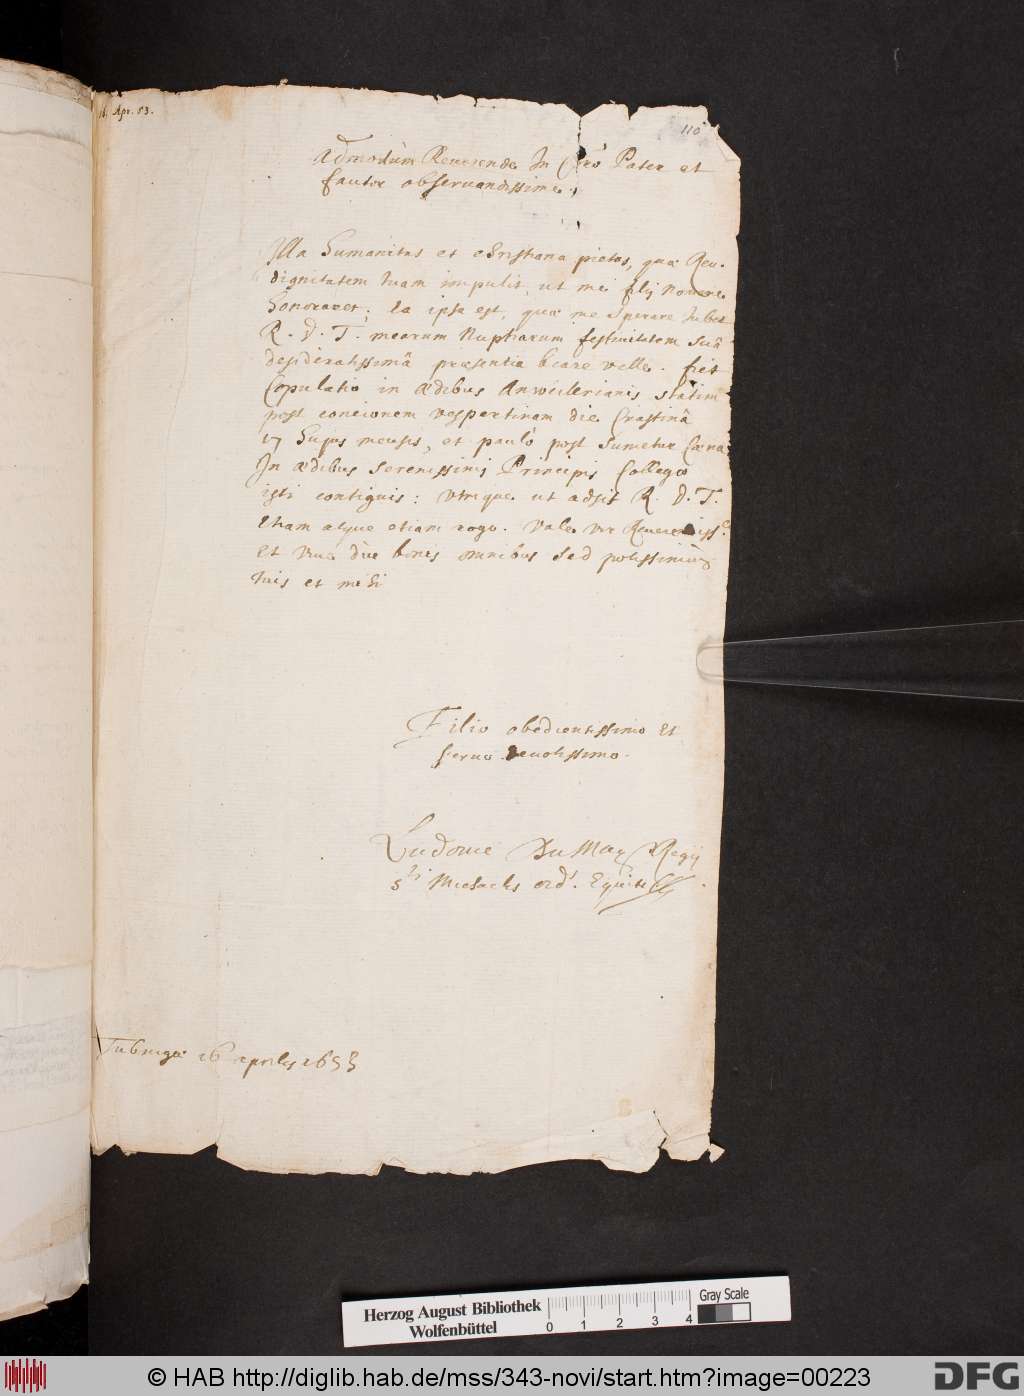 16. Apr. 53.
110
Admodùm Reverende In Chrō Pater et
fautor observandissime.
Illa humanitas et christiana pietas, quæ Rev.
dignitatem tuam impulit, ut me filij nomine
honoraret; Ea ipsa est, quæ me sperare Iubet
R. D. T. mearum Nuptiarum festivitatem suâ
desideratissimâ præsentia beare velle. fiet
Copulatio in ædibus Anweilerianis statim
post concionem vespertinam die Crastinâ
17 hujus mensis, et paulò post sumetur Cœna
In ædibus serenissimi Principis Collegio
isti contiguis: utrique ut adsit R. D. T.
Etiam atque etiam rogo. Vale vir
Et vive diu bonis omnibus sed potissimùm
tuis et mihi
Filio obedientissimo Et
servo devotissimo.
Ludovic Du May Regij
Sti Michaelis ord. Equite
Tubingæ 16 aprilis 1653
Herzog August Bibliothek
Wolfenbüttel
0 1 2 3 4
Gray Scale
© HAB http://diglib.hab.de/mss/343-novi/start.htm?image=00223
DFG